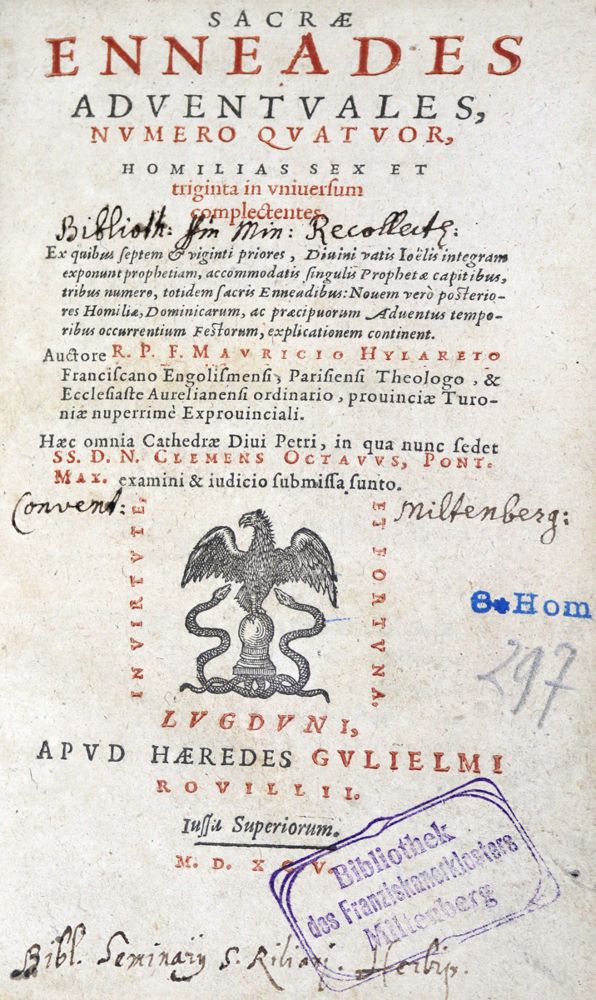 SACRÆ
ENNEADES
ADVENTVALES,
NVMERO QVATVOR,
HOMILIAS SEX ET
triginta in vniuersum
complectentes.
Biblioth: Min: Recollect:
Ex quibus septem & viginti priores, Diuini vatis Ioëlis integram
exponunt prophetiam, accommodatis singulis Prophetæ capitibus,
tribus numero, totidem sacris Enneadibus: Nouem verò posterio-
res Homiliæ, Dominicarum, ac præcipuorum Aduentus tempo-
ribus occurrentium Festorum, explicationem continent.
Auctore R. P. F. MAVRICIO HYLARETO
Franciscano Engolismensi, Parisiensi Theologo, &
Ecclesiaste Aurelianensi ordinario, prouinciæ Turo-
niæ nuperrimè Exprouinciali.
Hæc omnia Cathedræ Diui Petri, in qua nunc sedet
SS. D. N. CLEMENS OCTAVVS, PONT.
MAX. examini & iudicio submissa sunto.
Convent: Miltenberg:
IN VIRTVTE,
ET FORTVNA.
8*Hom
297
LVGDVNI,
APVD HÆREDES GVLIELMI
ROVILLII.
Iussu Superiorum.
M. D. XCV.
Bibliothek
des Franziskanerklosters
Miltenberg
Bibl. Seminarij S. Kiliani. Herbip.